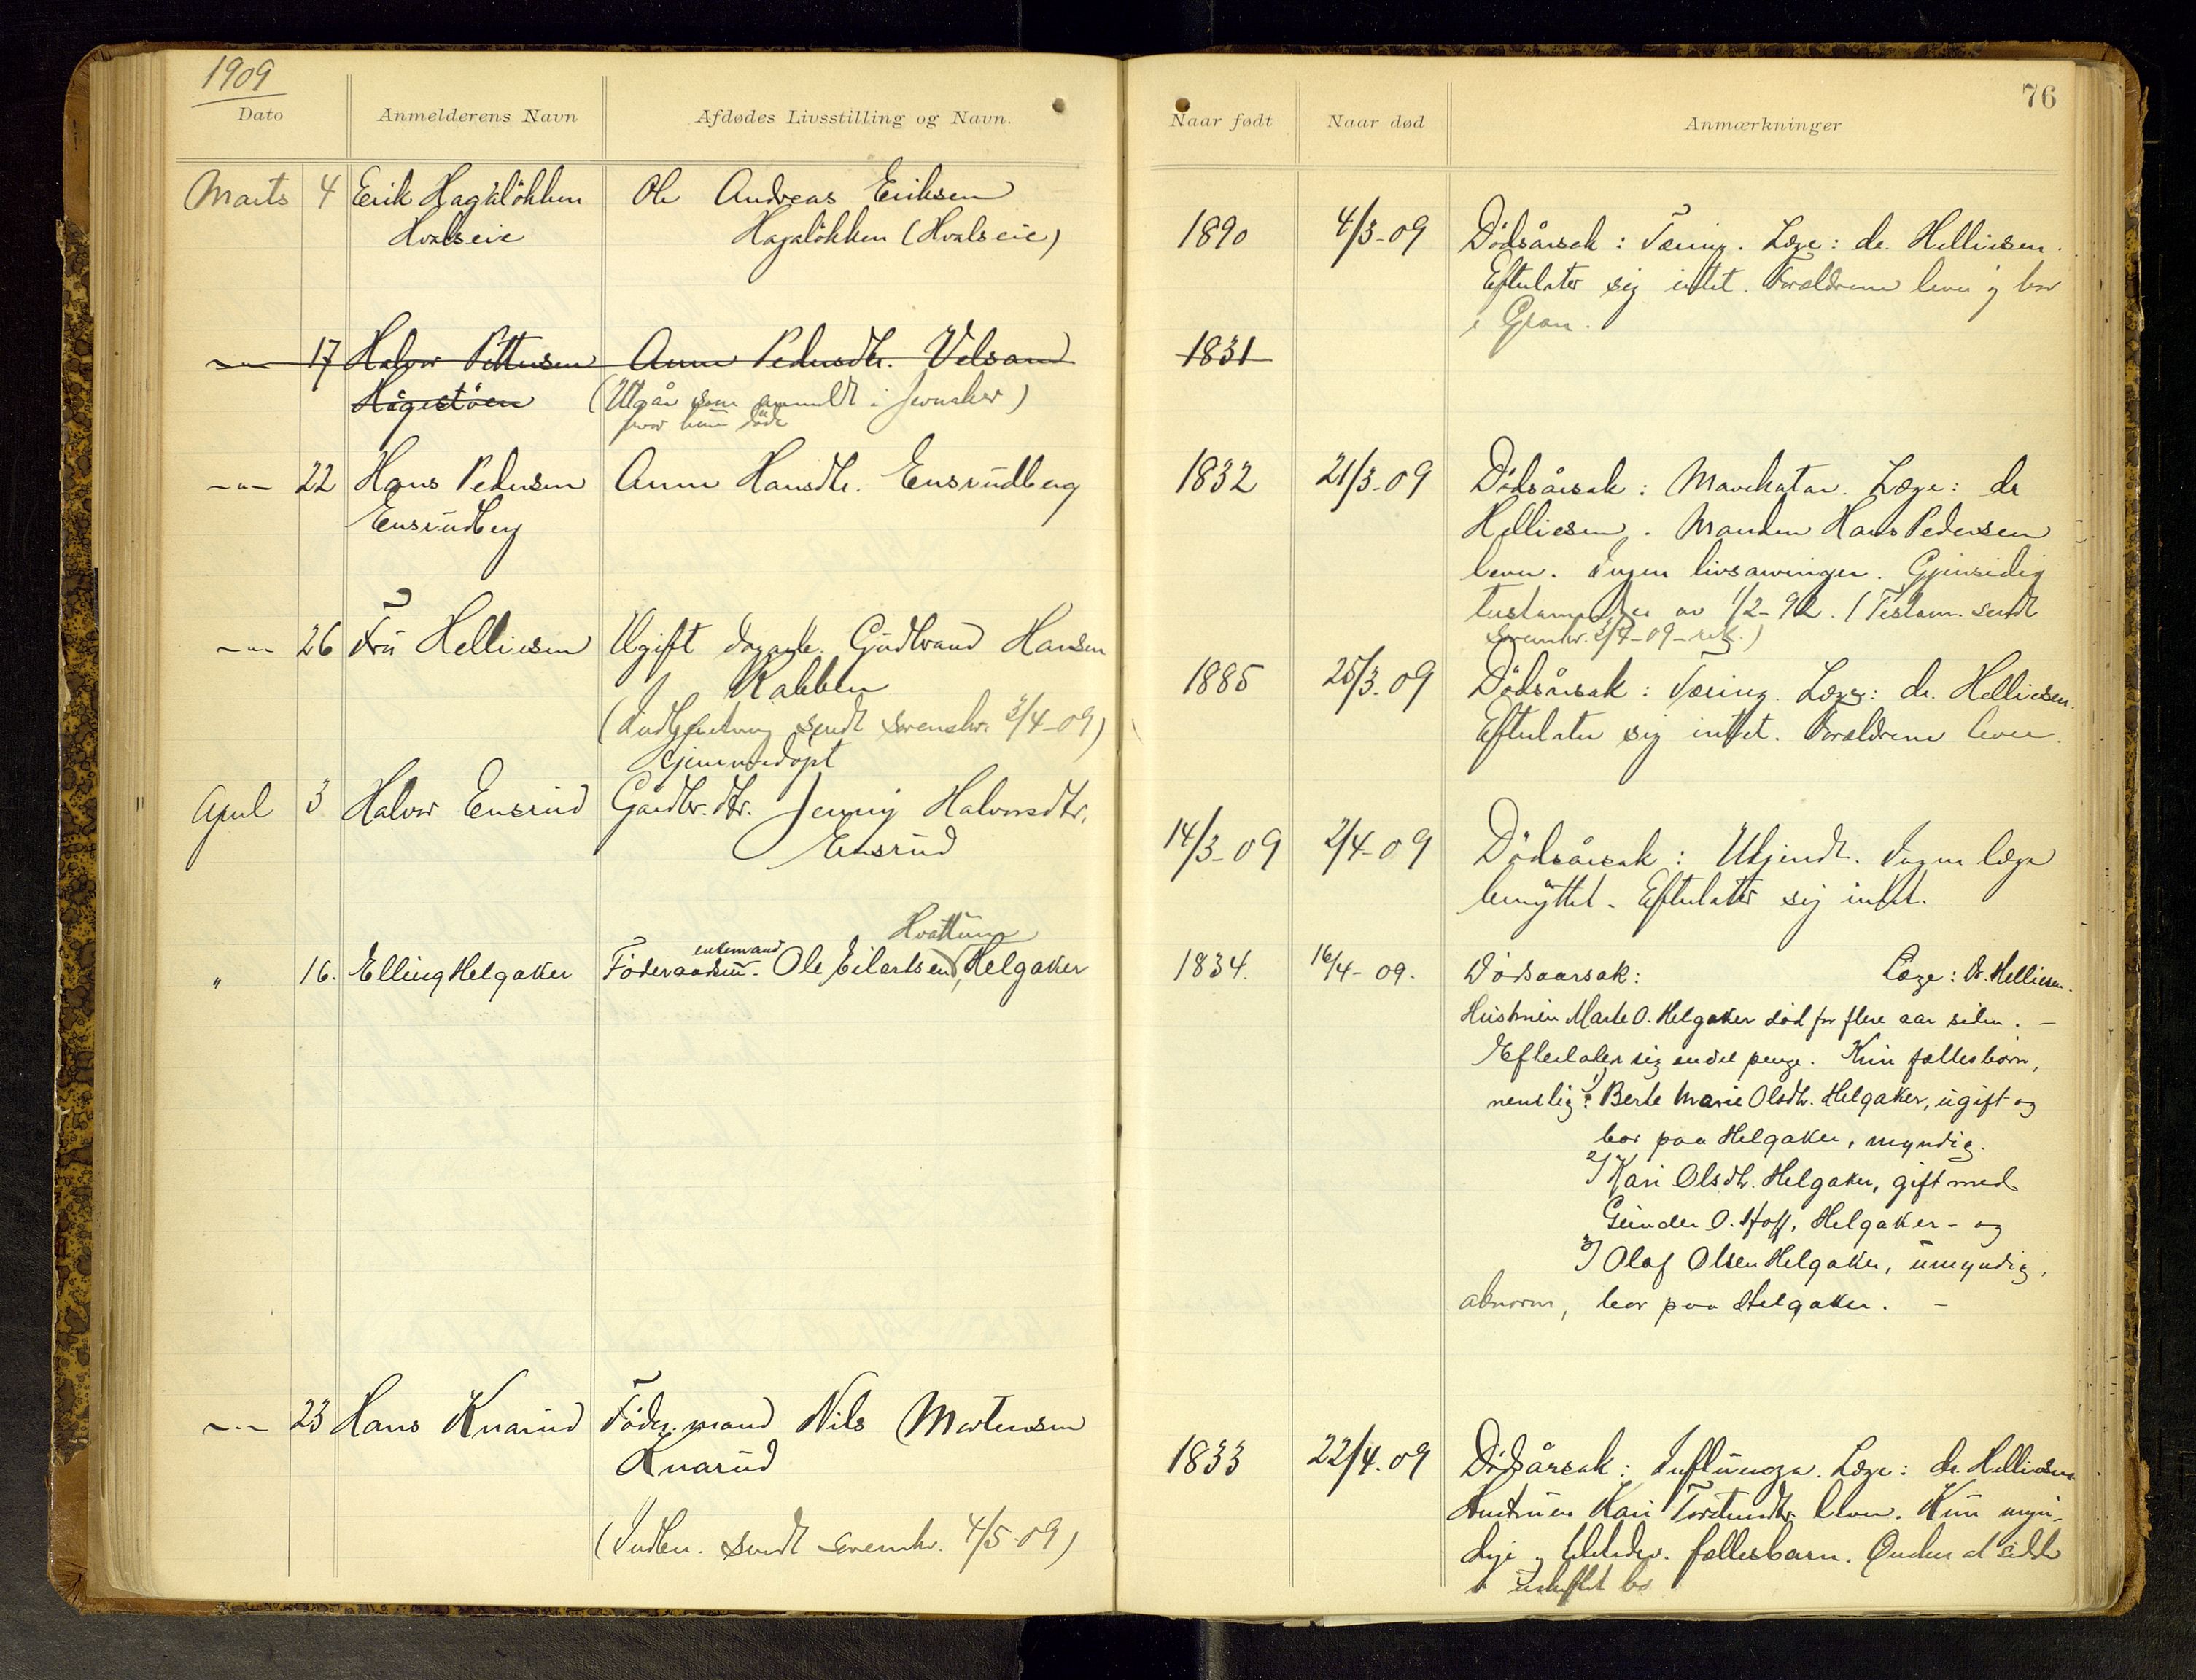 1909
76
Dato
Anmelderens Navn
Afdødes Livsstilling og Navn.
Naar født
Naar død
Anmærkninger
Marts 4 Erik Hagaløkken Ole Andreas Eriksen
Hvalseie Hagaløkken (Hvalseie)
1890 4/3-09 Dødsårsak: Tæring. Læge: dr. Helliesen.
Efterlater sig intet. Forældrene lever og bor
i Gran.
-"- 17 Halvor Pettersen Anne Pedersdtr. Velsand 1831
Hågåstøen (Utgår som anmeldt i Jevnaker)
hvor hun døde
-"- 22 Hans Pedersen Anne Hansdtr. Ensrudberg
Ensrudberg
1832 21/3-09 Dødsårsak: Mavekatar. Læge: dr
Helliesen. Manden Hans Pedersen
lever. Ingen livsarvinger. Gjensidig
testamente av 1/2-92. (Testam. sendt
sorenskr. 2/4-09-rek.)
-"- 26 Fru Helliesen Ugift dagarb. Gudbrand Hansen
Kabben
(Indberetning sendt sorenskr. 3/4-09)
1885 25/3-09 Dødsårsak: Tæring. Læge: dr. Helliesen.
Efterlater sig intet. Forældrene lever.
Gjemmedøpt
April 3 Halvor Ensrud Gårdbr. dtr. Jenny Halvorsdtr.
Ensrud
14/3-09 2/4-09 Dødsårsak: Ukjendt. Ingen læge
benyttet. Efterlater sig intet.
Hvattum
enkemand
" 16. Elling Helgaker Føderaadsm. Ole Eilertsen, Helgaker
1834. 16/4-09. Dødsaarsak: Læge: Dr. Helliesen.
Hustruen Marte O. Helgaker død for flere aar siden. –
Efterlater sig endel penge. Kun fællesbørn,
nemlig: 1) Berte Marie Olsdtr. Helgaker, ugift og
bor paa Helgaker, myndig.
2) Kari Olsdtr. Helgaker, gift med
Gunder O. Hoff, Helgaker - og
3) Olaf Olsen Helgaker, umyndig,
abnorm, bor paa Helgaker. –
-"- 23 Hans Knarud Føder.mand Nils Mortensen
Knarud
(Indber. sendt sorenskr. 4/5-09)
1833 22/4.09 Dødsårsak: Influenza. Læge: dr. Helliesen
Hustruen Kari Torstensdtr. lever. Kun myn-
dige og fællesbarn. Ønsker at sidde
i uskiftet bo